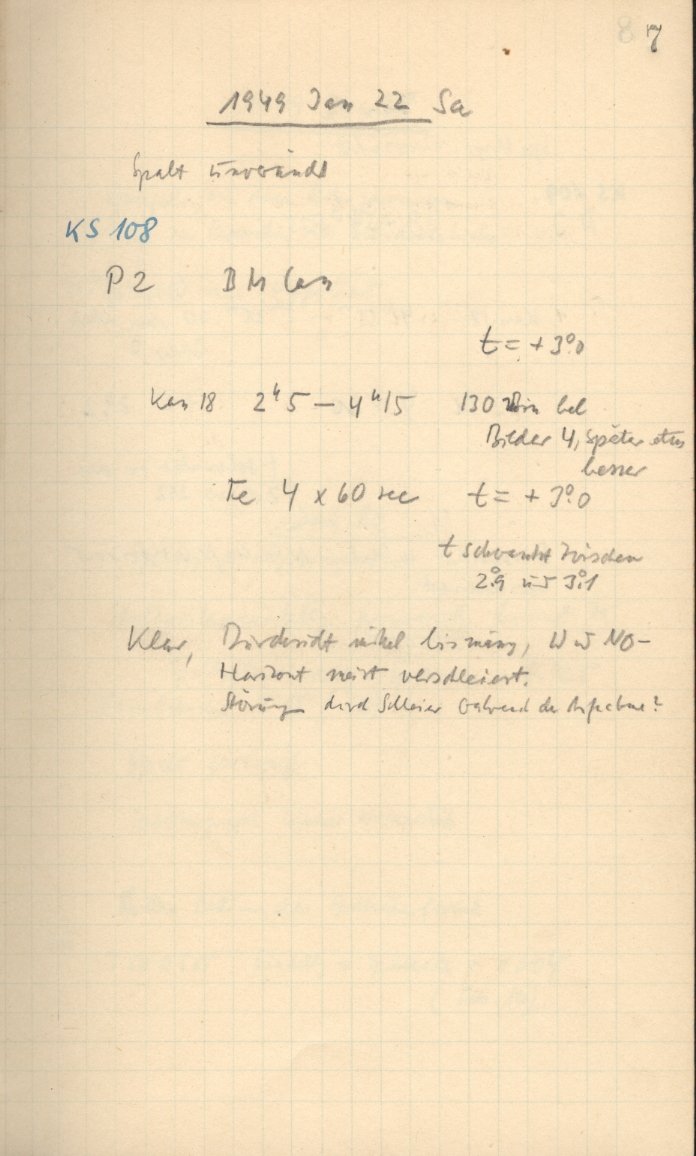 7
1949 Jan 22 Sa
Spalt unveränd
KS 108
P2 BM Cam
t = + 3°.0
Kas 18 2h5 — 4h15 130 Min bel
Bilder 4, später etw
besser
Fe 4 x 60 sec t = + 3°.0
t schwankt zwischen
2°.9 und 3°.1
Klar, Durchsicht mittel bis mäßig, W u NO-
Horizont meist verschleiert.
Störung durch Schleier während der Aufnahme?